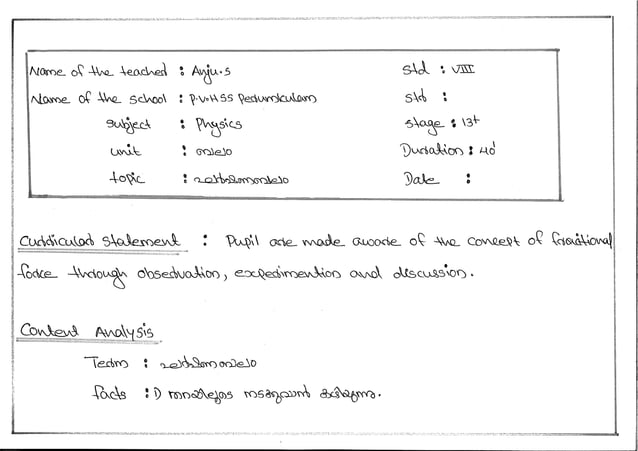 Name of the teacher : Anju.S Std : VIII
Name of the school : P.V.H.S.S Perumkulam Std :
Subject : Physics Stage : 13+
Unit : ബലം Duration : 40'
topic : ഘർഷണബലം Date :
Curricular statement : Pupil are made aware of the concept of frictional
force through observation, experimention and discussion.
Content Analysis
Term : ഘർഷണബലം
facts : 1) തറയിലൂടെ നടക്കുവാൻ കഴിയുന്നു.